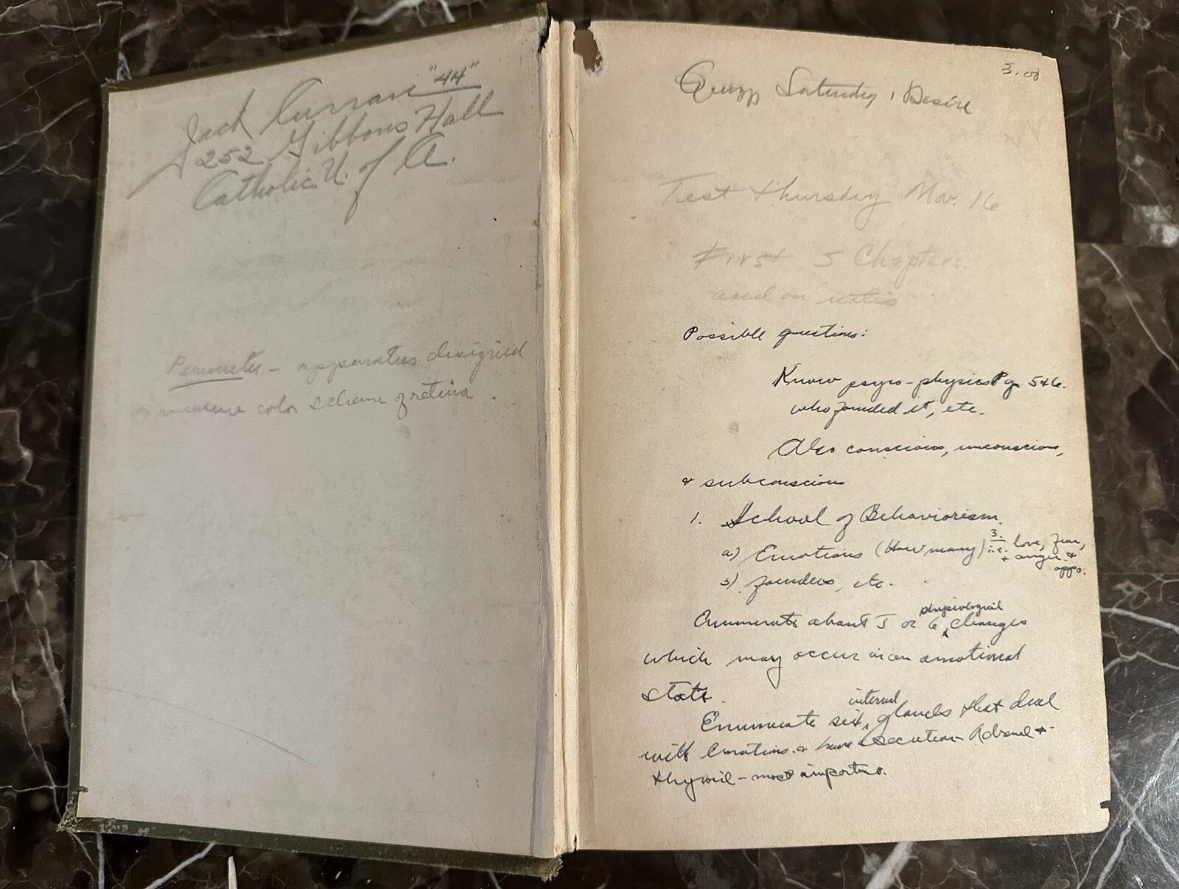 Jack Curran "44"
252 Gibbons Hall
Catholic U. of A.
Perimeter - apparatus designed
to measure color scheme of retina.
3.00
Quizz Saturday, Desire
Test Thursday Nov. 16
First 5 Chapters.
Possible questions:
Know psycho-physics Pg 5+6.
who founded it, etc.
Also conscious, unconscious,
& subconscious
1. School of Behaviorism.
a) Emotions (How many) 3. i.e. love, fear,
+ anger +
appo.
b) founders, etc.
physiological
Enumerate about 5 or 6 changes
which may occur in an emotional
state.
internal
Enumerate six glands that deal
with Emotions. & have secretion - Adrenal +
thyroid - most important.